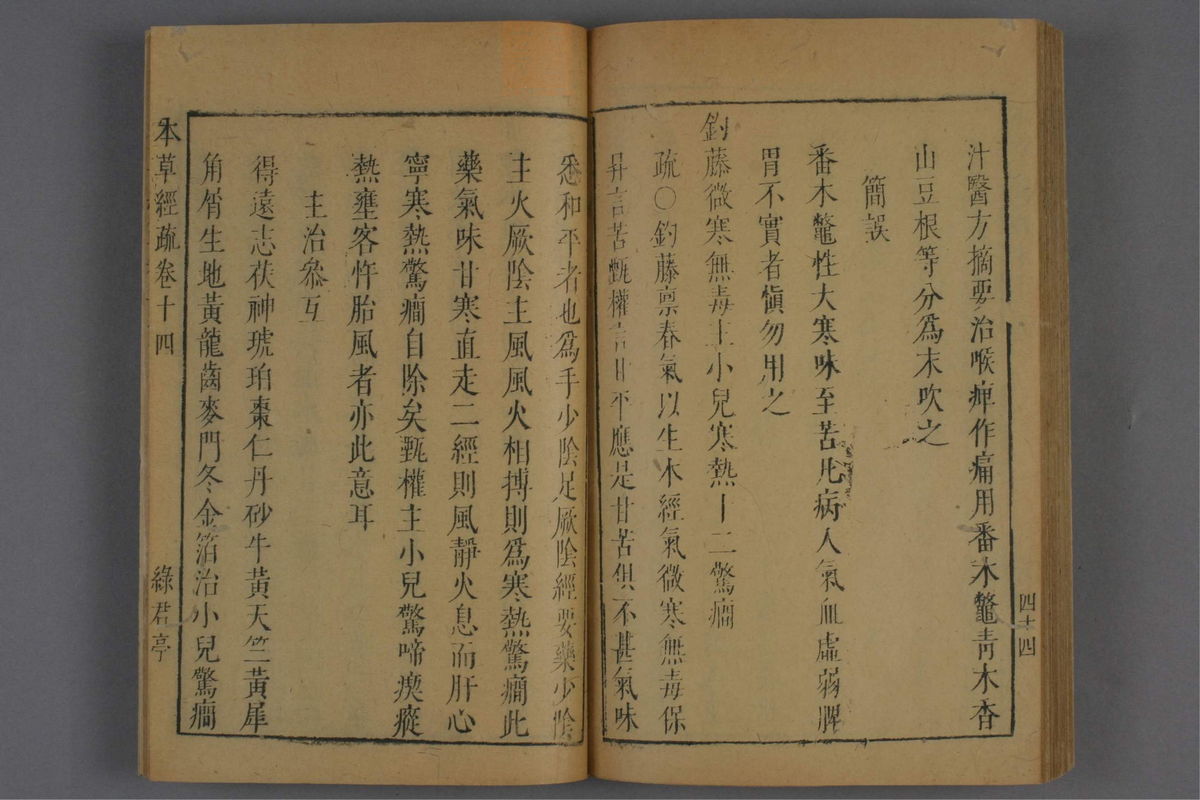 汁醫方摘要治喉痺作痛用番木鼈靑木香
山豆根等分爲末吹之
簡誤
番木鼈性大寒味至苦凡病人氣血虛弱脾
胃不實者愼勿用之
釣藤微寒無毒主小兒寒熱十二驚癇
疏○釣藤禀春氣以生木經氣微寒無毒保
昇言苦甄權言甘平應是甘苦俱不甚氣味
四十四
悉和平者也爲手少陰足厥陰經要藥少陰
主火厥陰主風風火相搏則爲寒熱驚癇此
藥氣味甘寒直走二經則風靜火息而肝心
寧寒熱驚癇自除矣甄權主小兒驚啼瘈瘲
熱壅客忤胎風者亦此意耳
主治叅互
得遠志茯神琥珀棗仁丹砂牛黃天竺黃犀
角屑生地黃龍齒麥門冬金箔治小兒驚癇
本草經疏卷十四
綠君亭